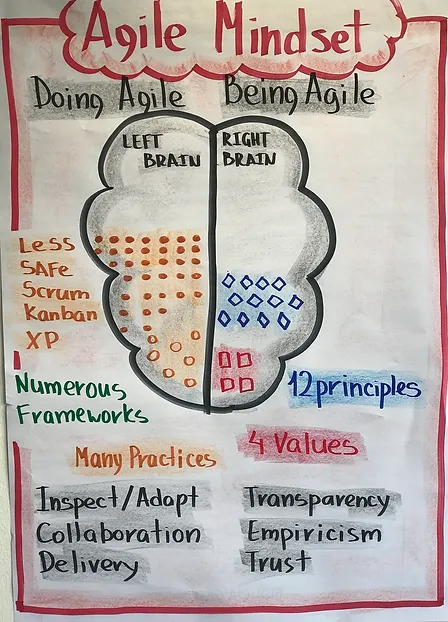 Agile Mindset
Doing Agile
Being Agile
LEFT
BRAIN
RIGHT
BRAIN
Less
SAFe
Scrum
Kanban
XP
Numerous
Frameworks
12 principles
Many Practices
4 Values
Inspect/Adapt
Collaboration
Delivery
Transparency
Empiricism
Trust